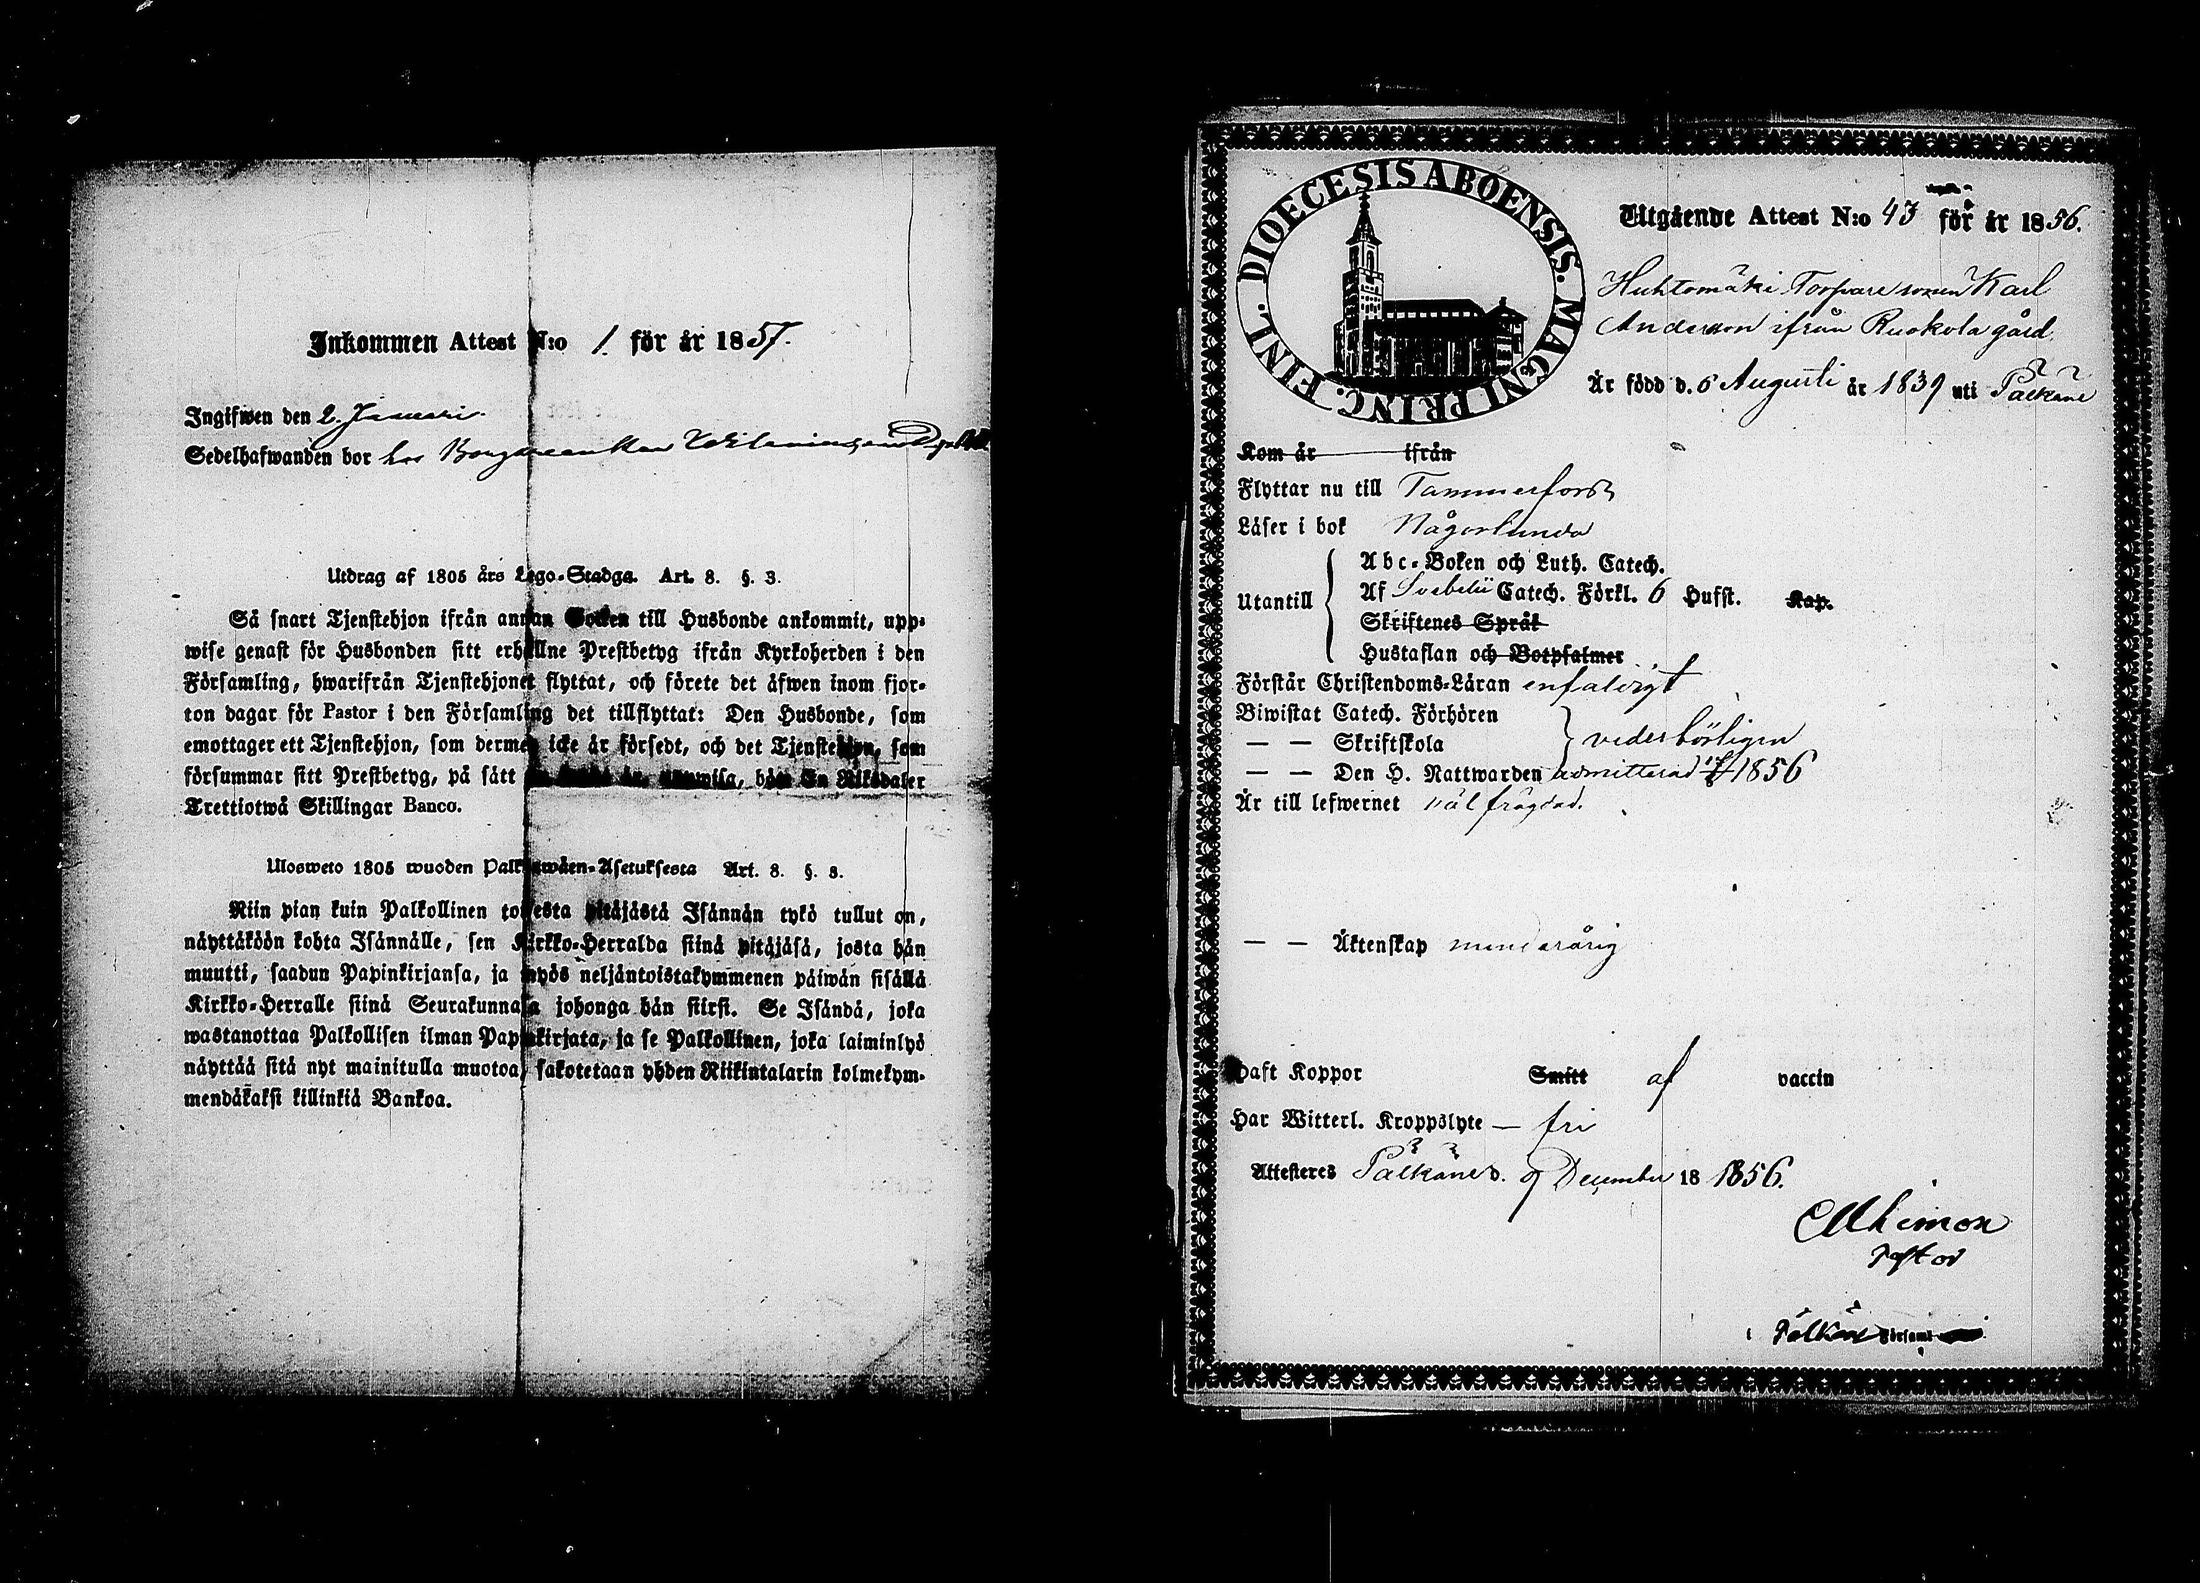 Inkommen Attest N:o 1. för år 1857.
Ingifwen den 2. Januari.
Sedelhafwanden bor hos
Utdrag af 1805 års Lego-Stadga. Art. 8. §. 3.
Så snart Tjenstehjon ifrån annan Socken till Husbonde ankommit, upp-
wise genast för Husbonden sitt erhållne Prestbetyg ifrån Kyrkoherden i den
Församling, hwarifrån Tjenstehjonet flyttat, och förete det äfwen inom fjor-
ton dagar för Pastor i den Församling det tillflyttat: Den Husbonde, som
emottager ett Tjenstehjon, som dermed icke är försedt, och det Tjenstehjon, som
försummar sitt Prestbetyg, på sätt uppwisa, böte En Riksdaler
Trettiotwå Skillingar Banco.
Ulosweto 1805 wuoden Palkkawäen-Asetuksesta Art. 8. §. 3.
Niin pian kuin Palkollinen toisesta pitäjästä Isännän tykö tullut on,
näyttäköön kohta Isännälle, sen Kirkko-Herralda siinä pitäjäsä, josta hän
muutti, saadun Papinkirjansa, ja myös neljäntoistakymmenen päiwän sisällä
Kirkko-Herralle siinä Seurakunnasa johonga hän siirsi. Se Isändä, joka
wastanottaa Palkollisen ilman Papinkirjata, ja se Palkollinen, joka laiminlyö
näyttää sitä nyt mainitulla muotoa, sakotetaan yhden Riikintalarin kolmekym-
mendäkaksi killinkiä Bankoa.
DIOECESIS ABOENSIS. MAGNI PRINC. FINL.
Utgående Attest N:o 43 för år 1856.
Huhtomäki Torparesonen Karl
Anderson ifrån Ruokola gård.
Är född d. 6 Augusti år 1839 uti Pälkäne
Kom år ifrån
Flyttar nu till Tammerfors
Läser i bok Någorlunda
Utantill
Abc-Boken och Luth. Catech.
Af Svebelii Catech. Förkl. 6 Hufst. Kap.
Skriftenes Språk
Hustaflan och Botpsalmer
Förstår Christendoms-Läran enfaldigt
Biwistat Catech. Förhören
— — Skriftskola vederbörligen
— — Den H. Nattwarden admitterad 1856
Är till lefwernet väl frägdad.
— — Äktenskap minderårig
Haft Koppor Smitt af vaccin
Har Witterl. Kroppslyte — fri
Attesteres Pälkäne d. 9 December 18 1856.
Pastor
i Pälkäne Församl